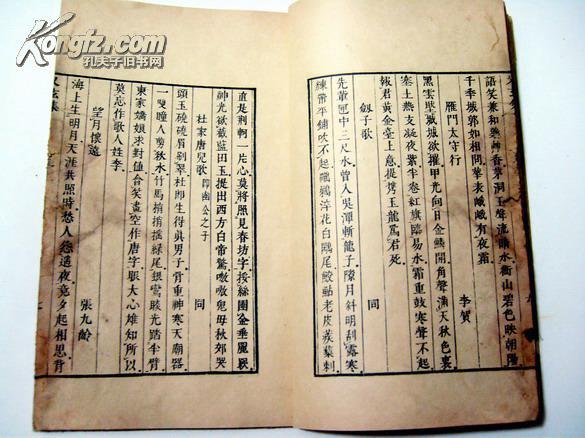 Kongfz.com
孔夫子旧书网
語笑兼和
洞玉聲流暗水衡山碧色映朝陽
千季城郭如相問華表峨峨有夜霜
雁門太守行
李賀
黑雲壓城城欲摧甲光向日金鱗開角聲滿天秋色裏
塞土燕支凝夜紫半卷紅旗臨易水霜重鼓寒聲不起
報君黃金臺上意提攜玉龍爲君死
劔子歌
同
先輩匣中三尺水曾入吳潭斬龍子隙月斜明刮露寒
練帶平鋪吹不起
淬花白鷴尾鮫胎老皮蒺藜刺
直是荆軻一片心莫將照見春坊字挼絲團金垂麗䍡
神光欲截藍田玉提出西方白帝驚嗷嗷鬼母秋郊哭
杜家唐兒歌
豳公之子
同
頭玉磽磽眉刷翠杜郎生得真男子骨重神寒天廟器
一雙瞳人剪秋水竹馬梢梢搖綠尾銀鸞睒光踏半臂
東家嬌娘求對值
笑畫空作唐字眼大心雄知所以
莫忘作歌人姓李
望月懷遠
張九齡
海上生明月天涯共
時
人怨遙夜竟夕起相思